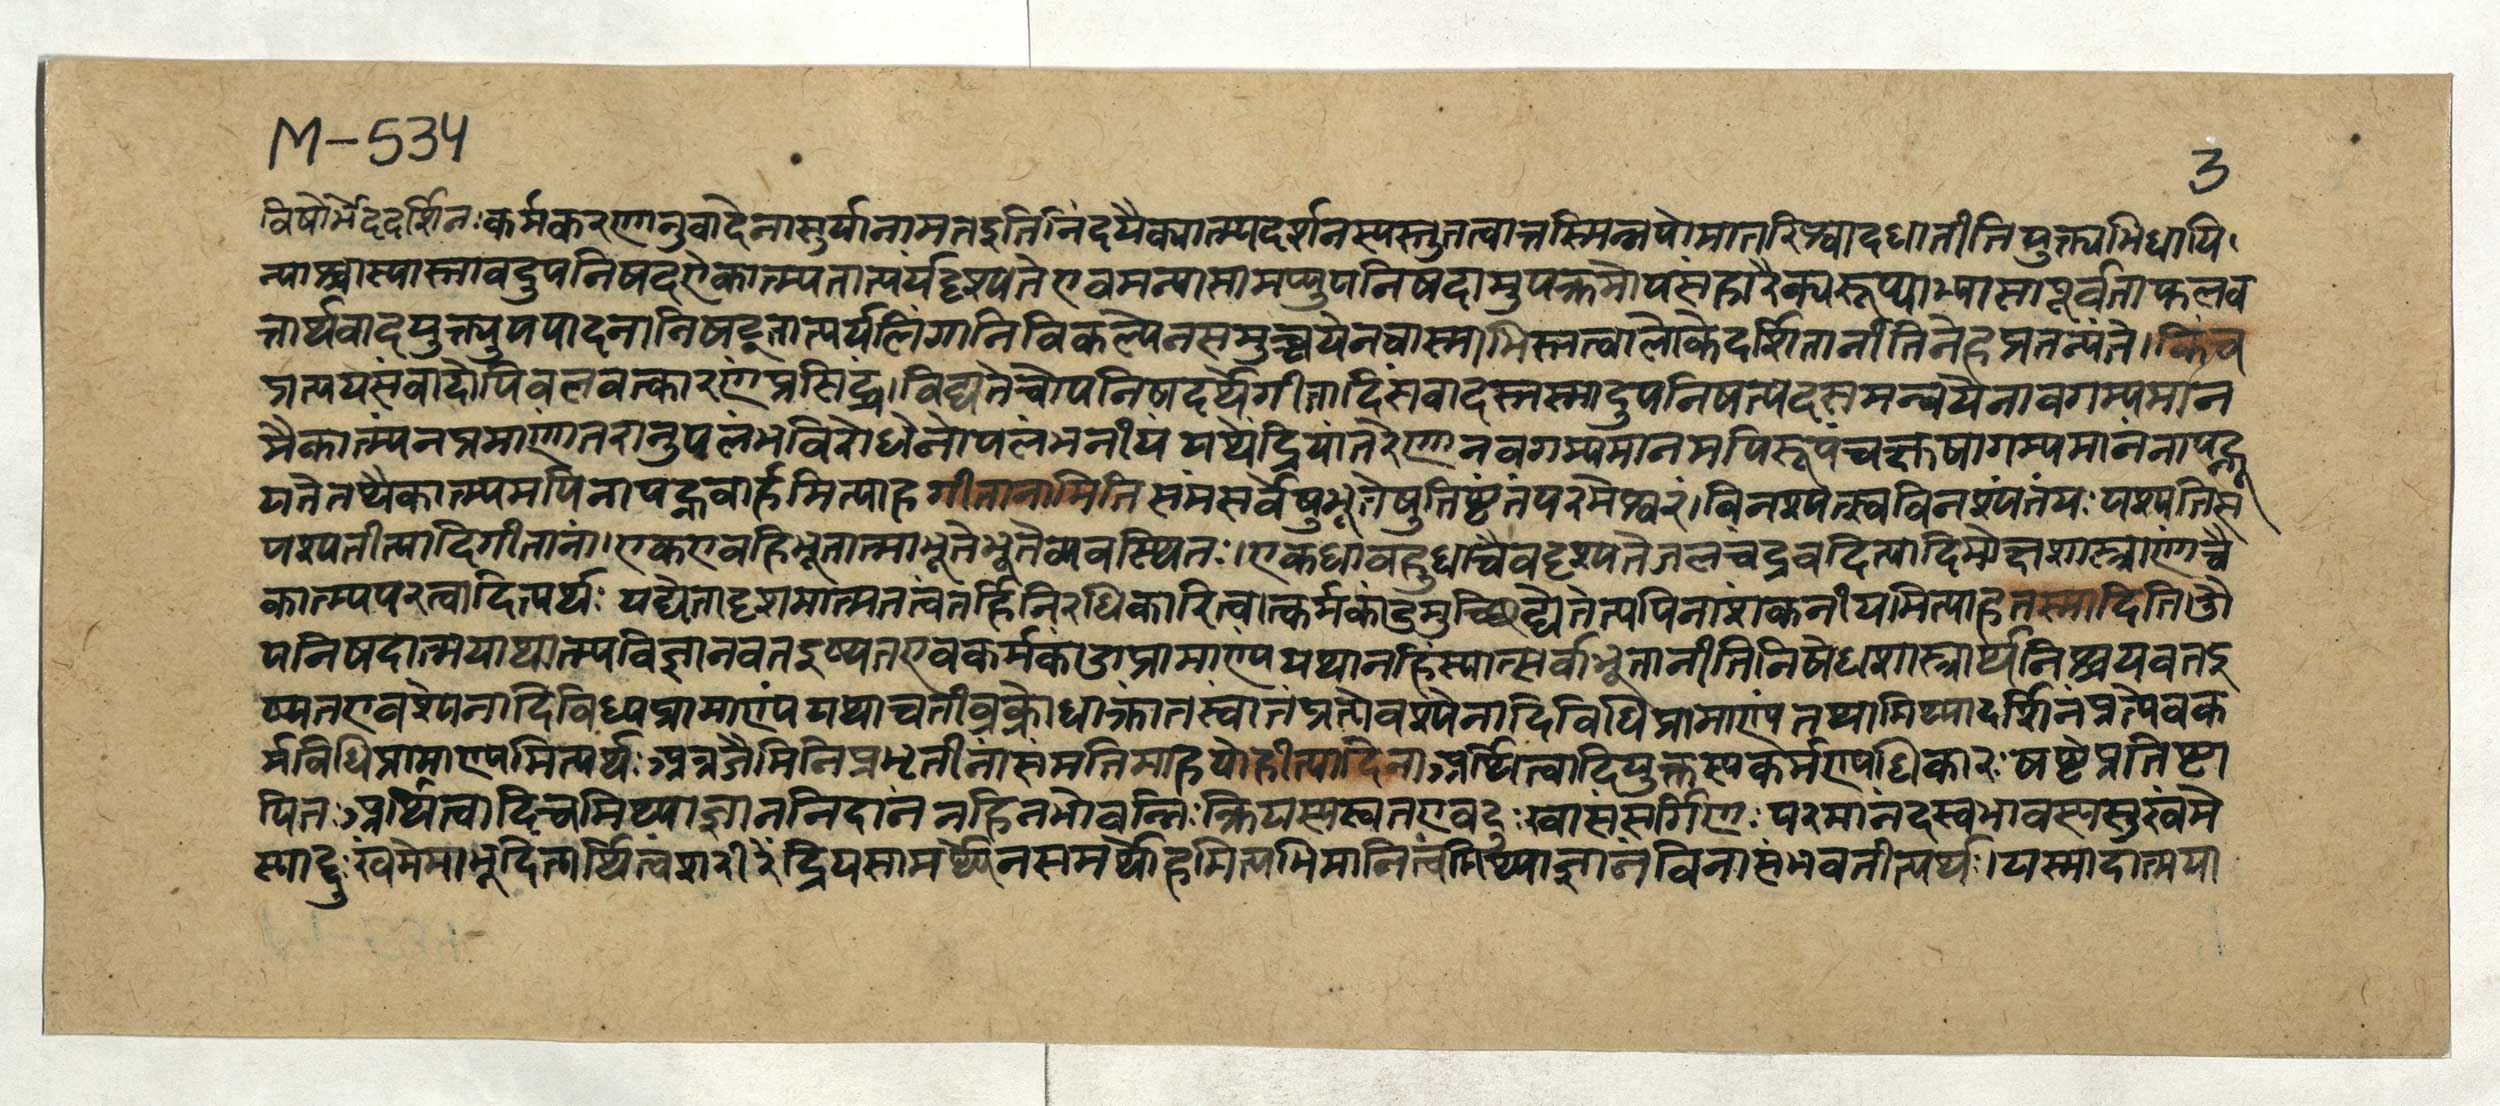 M-534
3
विषोर्भेददर्शिनः कर्मकरणानुवादेनासुर्यानामतइतिनिंदयैकात्म्यदर्शनस्यस्तुतत्वात्तस्मिन्नपोमातरिश्वादधातीतियुक्त्यभिधायि
न्याश्वास्यास्तावदुपनिषदऐकात्म्यतात्पर्यंदृश्यतेएवमन्यासामप्युपनिषदामुपक्रमोपसंहारैक्यरूप्याभ्यासापूर्वताफलव
त्तार्थवादयुक्त्युपपादनानिषट्तात्पर्यलिंगानिविकल्पेनसमुच्चयेनवास्माभिस्तत्वालोकेदर्शितानीतिनेहप्रतन्यंते। किंच
प्रत्ययसंवादोपिबलवत्कारणंप्रसिद्धं। विद्यतेचौपनिषदर्थेगीतादिसंवादस्तस्मादुपनिषत्पदसमन्वयेनावगम्यमान
मैकात्म्यंनप्रमाणांतरानुपलंभविरोधेनोपलंभनीयं यथेंद्रियांतरेणानवगम्यमानमपिरूपंचक्षुषागम्यमानंनापह्नू
यतेतथैकात्म्यमपिनापह्नवार्हमित्याहगीतानामिति समंसर्वेषुभूतेषुतिष्टंतंपरमेश्वरं। विनश्यत्स्वविनश्यंतंयः पश्यतिस
पश्यतीत्यादिगीतानां। एकएवहिभूतात्माभूतेभूतेव्यवस्थितः। एकधाबहुधाचैवदृश्यतेजलचंद्रवदित्यादिमोक्षशास्त्राणांचै
कात्म्यपरत्वादित्यर्थः यद्येतादृशमात्मतत्वंतर्हिनिरधिकारित्वात्कर्मकांडमुच्छिद्येतेत्यपिनाशंकनीयमित्याहतस्मादितिऔ
पनिषदात्मयाथात्म्यविज्ञानवतइष्यतएवकर्मकांडाप्रामाण्यंयथानहिंस्यात्सर्वाभूतानीतिनिषेधशास्त्रार्थनिश्चयवतइ
ष्यतएवश्येनादिविध्यप्रामाण्यंयथाचतीव्रक्रोधाक्रांतस्वांतंप्रत्येवश्येनादिविधिप्रामाण्यंतथामिथ्यादर्शिनंप्रत्येवक
र्मविधिप्रामाण्यमित्यर्थः अत्रजैमिनिप्रभृतीनांसंमतिमाहयोहीत्यादिनाअर्थित्वादियुक्तस्यकर्मण्यधिकारः षष्टेप्रतिष्टा
पितः अर्थित्वादिचमिथ्याज्ञाननिदानं नहिनभोवन्निःक्रियस्यस्वतएवदुःखासंसर्गिणः परमानंदस्वभावस्यसुखंमे
स्याद्दुःखंमेमाभूदित्यर्थित्वंशरीरेंद्रियसामर्थ्येनसमर्थोहमित्यभिमानित्वंमिथ्याज्ञानंविनासंभवतीत्यर्थः। यस्मादात्मया